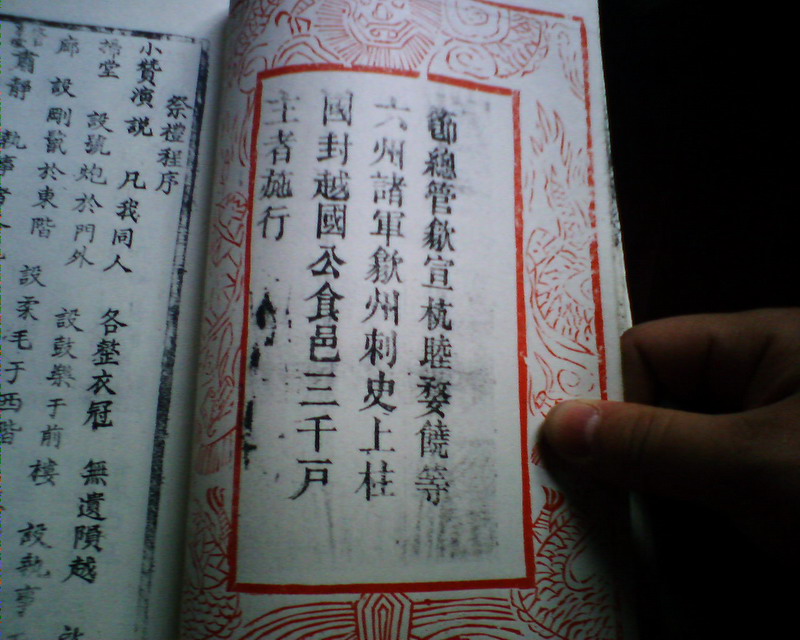 節總管歙宣杭睦婺饒等
六州諸軍歙州刺史上柱
國封越國公食邑三千戶
主者施行
祭禮程序
小贊演說 凡我同人 各整衣冠 無遺隕越
堂 設號炮於門外 設鼓樂于前樓 設執事
廊 設剛鬣於東階 設柔毛于西階
肅靜 執事者